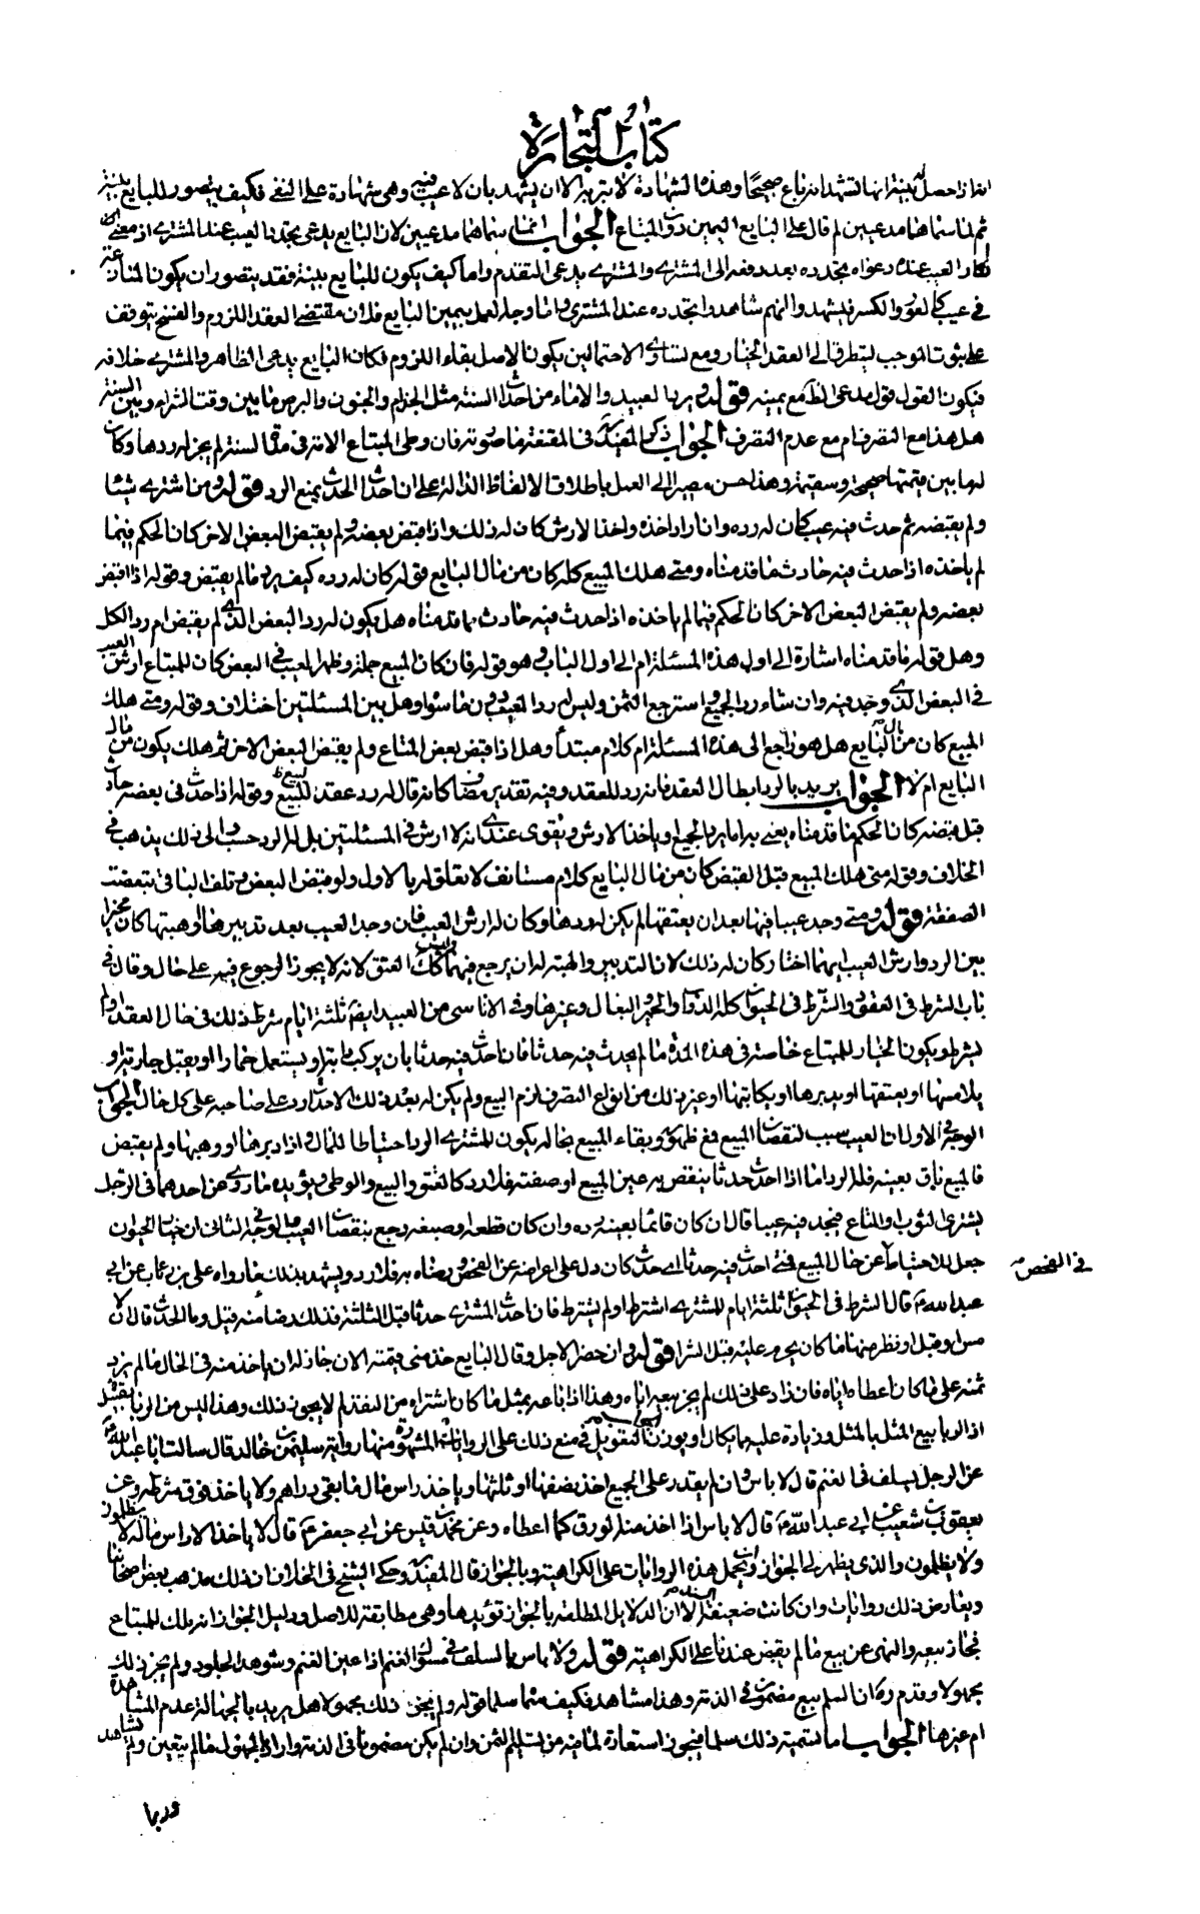 كتاب التجارة
اذا حصل بينة انها تشهد انه باع صحيحا وهذه الشهادة لا تبرئه الا ان يشهد بان لا عيب فيه وهى شهادة على النفى فكيف يتصور للبايع بينة
ثم لما سماهما مدعيين لم قال على البايع اليمين دون المبتاع الجواب انما سماهما مدعيين لان البايع يدعى تجدد العيب عند المشترى اذ معنى
انكار العيب عنده دعواه تجدده بعد دفعه الى المشترى والمشترى يدعى التقدم واما كيف يكون للبايع بينة فقد يتصور ان يكون المنازعة
في عيب كالعور والكسر فيشهدوا انهم شاهدوا تجدده عند المشترى واما وجه العمل بيمين البايع فلان مقتضى العقد اللزوم والفسخ يتوقف
على ثبوت الموجب لتطرق الى العقد الخيار ومع تساوى الاحتمالين يكون الاصل بقاء اللزوم فكان البايع يدعى الظاهر والمشترى خلافه
فيكون القول قول مدعى الظاهر مع يمينه قوله ويرد العبيد والاماء من احداث السنة مثل الجذام والجنون والبرص ما بين وقت الشراء وبين السنة
هل هذا مع التصرف ام مع عدم التصرف الجواب ذكر المفيد في المقنعة ما صورته فان وطى المبتاع الامة في مدة السنة لم يجز له ردها وكان
له ما بين قيمتها صحيحة وسقيمة وهذا حسن مصير الى العمل باطلاق الالفاظ الدالة على ان احداث الحدث يمنع الرد قوله ومن اشترى شيئا
ولم يقبضه ثم حدث فيه عيب كان له رده وان اراد اخذه واخذ الارش كان له ذلك واذا قبض بعضه ولم يقبض البعض الاخر كان الحكم فيما
لم ياخذه اذا حدث فيه حادث ما قدمناه ومتى هلك المبيع كله كان من مال البايع قوله كان له رده كيف يرد ما لم يقبض وقوله اذا قبض
بعضه ولم يقبض البعض الاخر كان الحكم فيما لم ياخذه اذا حدث فيه حادث ما قدمناه هل يكون له رد البعض الذى لم يقبض ام رد الكل
وهل قوله ما قدمناه اشارة الى اول هذه المسئلة ام الى اول الباب وهو قوله فان كان المبيع جملة وظهر العيب في البعض كان للمبتاع ارش العيب
في البعض الذى وجد فيه وان شاء رد الجميع واسترجع الثمن وليس له رد المعيب دون ما سواه وهل بين المسئلتين اختلاف وقوله ومتى هلك
المبيع كان من مال البايع هل هو راجع الى هذه المسئلة ام كلام مبتدأ وهل اذا قبض بعض المتاع ولم يقبض البعض الاخر ثم هلك يكون من مال
البايع ام لا الجواب يريد بالرد ابطال العقد فانه رد للعقد وفيه تقدير مضاف كانه قال له رد عقد المبيع وقوله اذا حدث في بعضه حادث
قبل قبضه كان الحكم ما قدمناه يعنى به اما يرد الجميع او ياخذ الارش ويقوى عندى انه لا ارش في المسئلتين بل له الرد حسب والى ذلك يذهب في
الخلاف وقوله متى هلك المبيع قبل القبض كان من مال البايع كلام مستانف لا تعلق له بالاول ولو قبض البعض وتلف الباقى تبعضت
الصفقة قوله ومتى وجد عيبا فيها بعد ان يعتقها لم يكن له ردها وكان له ارش العيب فان وجد العيب بعد تدبيرها او هبتها كان مخيرا
بين الرد وارش العيب ايهما اختار كان له ذلك لان التدبير والهبة له ان يرجع فيهما وليس كذلك العتق لانه لا يجوز الرجوع فيه على حال وقال في
باب الشرط في العقود والشرط في الحيوان كله الدواب والحمير والبغال وغيرها وفى الاناسى من العبيد ايضا ثلثة ايام شرط ذلك في حال العقد او لم
يشرط ويكون الخيار للمبتاع خاصة في هذه المدة ما لم يحدث فيه حدثا فان احدث فيه حدثا بان يركب دابة او يستعمل حمارا او يقبل جارية او
يلامسها او يعتقها او يدبرها او يكاتبها او غير ذلك من انواع التصرف لزم البيع ولم يكن له بعد ذلك الاحداث رد على صاحبه على كل حال الجواب
الوجه في الاول ان العيب سبب لنقصان المبيع فمع ظهوره وبقاء المبيع بحاله يكون للمشترى الرد احتياطا للمال واذا دبرها او وهبها ولم يقبض
فالمبيع باق بعينه فله الرد اما اذا احدث حدثا ينقص به عين المبيع او صفته فلا رد كالعتق والبيع والوطى ويؤيده ما روى عن احدهما في الرجل
يشترى الثوب او المتاع فيجد فيه عيبا قال ان كان قائما بعينه رده وان كان قطعه او صبغه رجع بنقصان العيب والوجه في الثانى ان خيار الحيوان
جعل للاحتياط عن حال المبيع فمتى احدث فيه حدثا اى حدث كان دل على اعراضه عن الفحص ورضاه به فلا رد ويشهد بذلك ما رواه على بن رئاب عن ابى
في الفحص
عبد الله قال الشرط في الحيوان ثلثة ايام للمشترى اشترط او لم يشترط فان احدث المشترى حدثا قبل الثلثة فذلك رضا منه قيل وما الحدث قال ان لا
مس او قبل او نظر منها ما كان يحرم عليه قبل الشراء قوله وان حضر الاجل وقال البايع خذ منى قيمته الان جاز له ان ياخذ منه في الحال ما لم يزد
ثمنه على ما كان اعطاه اياه فان زاد على ذلك لم يجز بيعه اياه وهذا اذا باعه بمثل ما كان اشتراه من النقد لم لا يجوز ذلك وهذا ليس من الربا بقبيل
اذ الربا بيع المثل بالمثل وزيادة عليه مما يكال او يوزن الجواب التعويل في منع ذلك على الروايات المشهورة منها رواية سليمان بن خالد قال سالت ابا عبد الله
عن الرجل يسلف في الغنم قال لا باس وان لم يقدر على الجميع اخذ نصفها او ثلثها وياخذ راس مال ما بقى دراهم ولا ياخذ فوق شرطه وعن
يعقوب بن شعيب عن ابى عبد الله قال لا باس اذا اخذ منه الورق كما اعطاه وعن محمد بن قيس عن ابى جعفر قال لا ياخذ الا راس ماله لا يظلمون
ولا يظلمون والذى يظهر لى الجواز ويحمل هذه الروايات على الكراهية وبالجواز قال المفيد وحكى الشيخ في الخلاف ان ذلك مذهب بعض اصحابنا
ويعارض ذلك روايات وان كانت ضعيفة السند الا ان الدلايل المطلقة بالجواز تؤيدها وهى مطابقة للاصل ودليل الجواز انه ملك للمبتاع
فجاز بيعه والنهى عن بيع ما لم يقبض عندنا على الكراهية قوله ولا باس بالسلف في مسوك الغنم اذا عين الغنم وشوهد الجلود ولم يجز ذلك
مجهولا وقدم ان السلم بيع مضمون في الذمة وهذا مشاهد فكيف سما سلما قوله ولم يجز ذلك مجهولا هل يريد بالجهالة عدم المشاهدة
ام غيرها الجواب اما تسمية ذلك سلما فيجوز استعارة لما فيه من تسليم الثمن وان لم يكن مضمونا في الذمة واراد بالمجهول ما لم يتعين ولم يشاهد
وربما